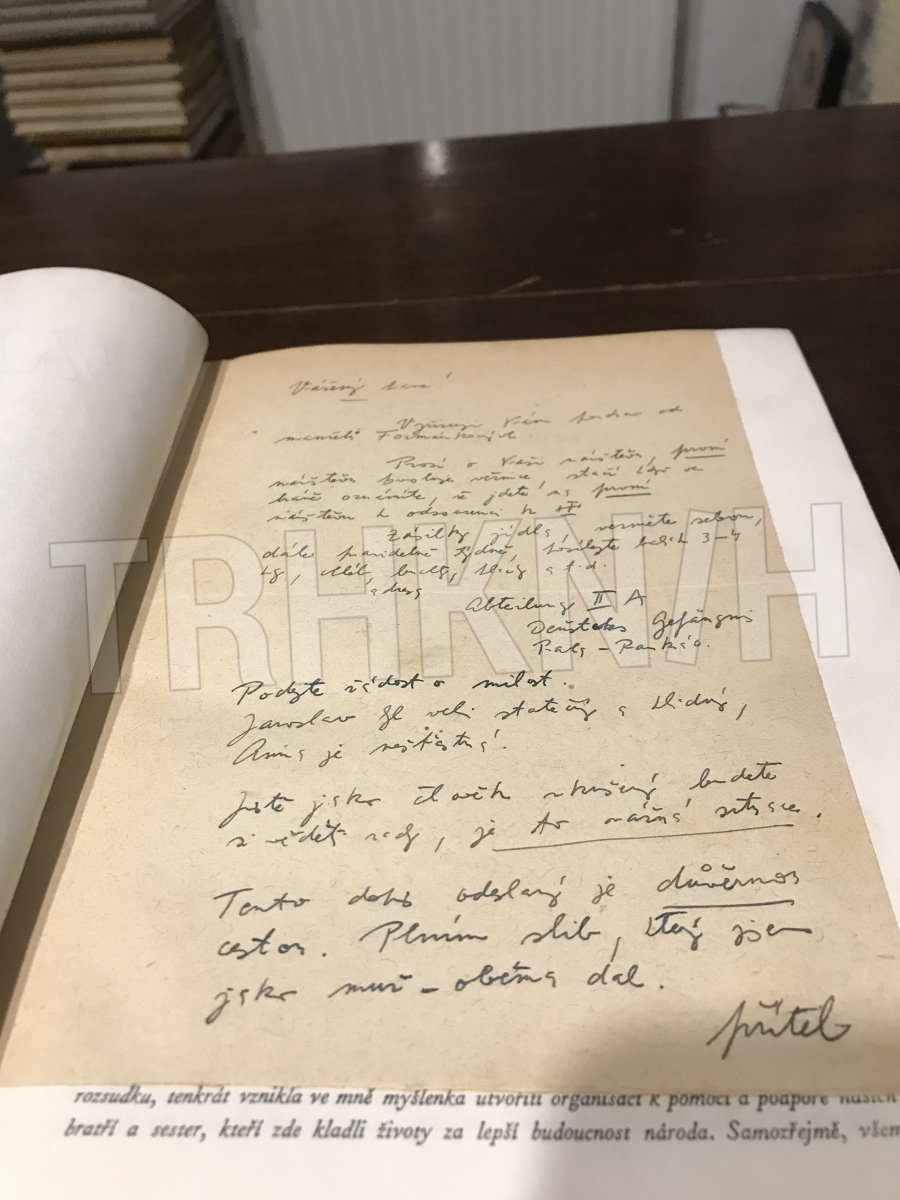 Vážený pane!
Vyřizuji Vám pozdrav od
manželů Formánkových.
Prosí o Vaši návštěvu, první
návštěvu
oznámíte, že jdete na první
návštěvu k odsouzenci k †
Zásilky jídla, vezměte sebou,
dále pravidelně týdně, 3-4
kg, chléb, a t.d.
adresa
Abteilung II A
Deutsches Gefängnis
Prag - Pankrác.
Podejte žádost o milost.
Jaroslav byl velmi statečný a klidný,
Anna je nešťastná.
Jistě jako člověk zkušený budete
si vědět rady, je to vážná situace.
Tento dopis odeslaný je důvěrnou
cestou. Plním slib, který jsem
jako muž - oběma dal.
přítel
rozsudku, tenkrát vznikla ve mně myšlenka utvořiti organisaci k pomoci a podpoře našich
bratří a sester, kteří zde kladli životy za lepší budoucnost národa. Samozřejmě, všem
TRHKNIH